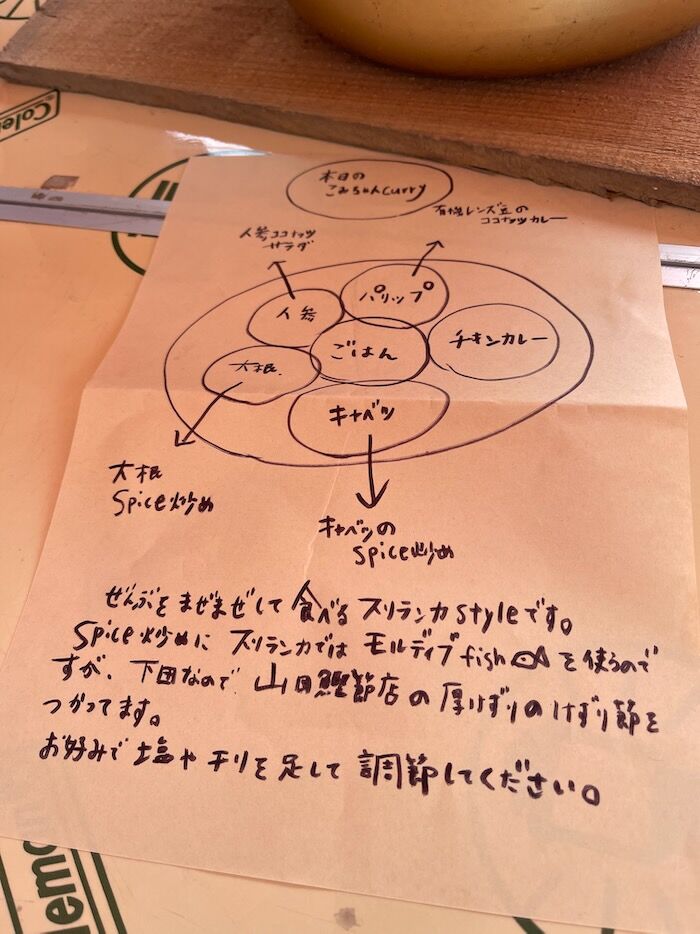 本日の
こみちゃんcurry
有機レンズ豆の
ココナッツカレー
人参ココナッツ
サラダ
パリップ
人参
チキンカレー
ごはん
大根
キャベツ
大根
Spice炒め
キャベツの
spice炒め
ぜんぶをまぜまぜして食べるスリランカstyleです。
Spice炒めにスリランカではモルディブfishを使うので
すが、下田なので山田鰹節店の厚けずりのけずり節を
つかってます。
お好みで塩やチリを足して調節してください。
Colem
Coleman